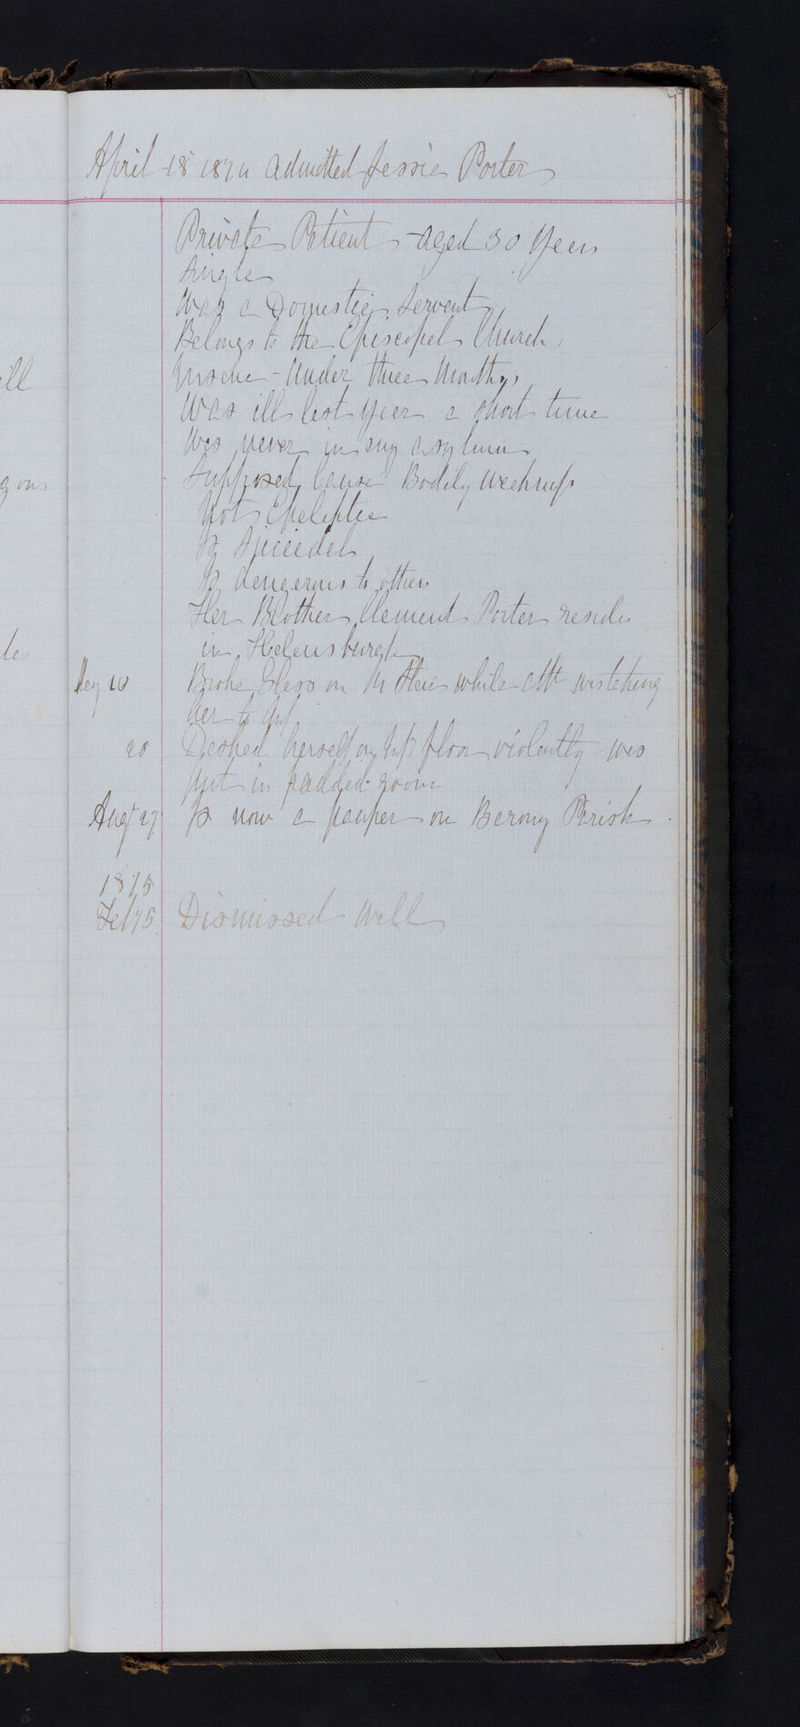 ill
gons
April 18 1874 admitted Jessie Porter
Private Patient - aged 30 years
Single
Was a Domestic Servant
Belongs to the Episcopal Church
Insane - under three Months
Was ill last year a short time
Was never in any asylum
Supposed Cause Bodily Weakness
Not Epileptic
Is Suicidal
Is dangerous to others
Her Brother Clement Porter resides
in Helensburgh
May 10 Broke Glass on Stair while Att was taking
her to
20 Dashed herself on floor violently was
put in padded room
Augt 27 Is now a pauper on Barony Parish
1875
Feb 15 Dismissed Well